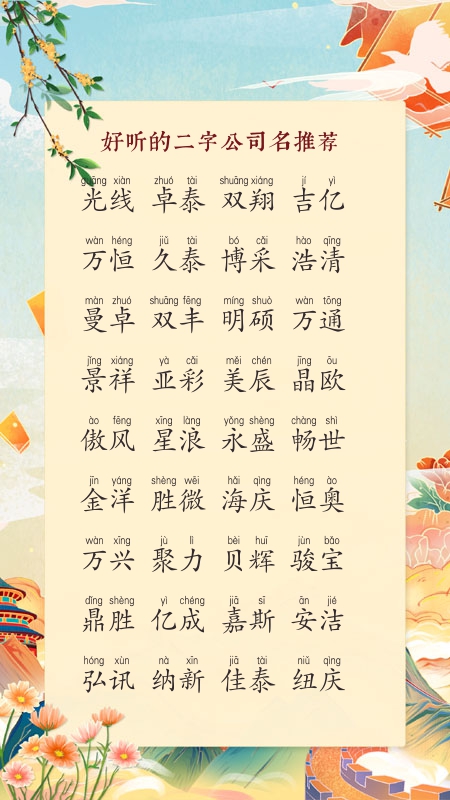 好听的二字公司名推荐
guāng xiàn zhuó tài shuāng xiáng jí yì
光线 卓泰 双翔 吉亿
wàn héng jiǔ tài bó cǎi hào qīng
万恒 久泰 博采 浩清
màn zhuó shuāng fēng míng shuò wàn tōng
曼卓 双丰 明硕 万通
jǐng xiáng yà cǎi měi chén jīng ōu
景祥 亚彩 美辰 晶欧
ào fēng xīng làng yǒng shèng chàng shì
傲风 星浪 永盛 畅世
jīn yáng shèng wēi hǎi qìng héng ào
金洋 胜微 海庆 恒奥
wàn xīng jù lì bèi huī jùn bǎo
万兴 聚力 贝辉 骏宝
dǐng shèng yì chéng jiā sī ān jié
鼎胜 亿成 嘉斯 安洁
hóng xùn nà xīn jiā tài niǔ qìng
弘讯 纳新 佳泰 纽庆